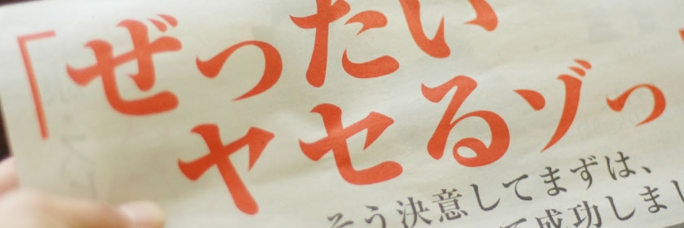 「ぜったい
ヤセるゾっ
そう決意してまずは、
て成功しまし